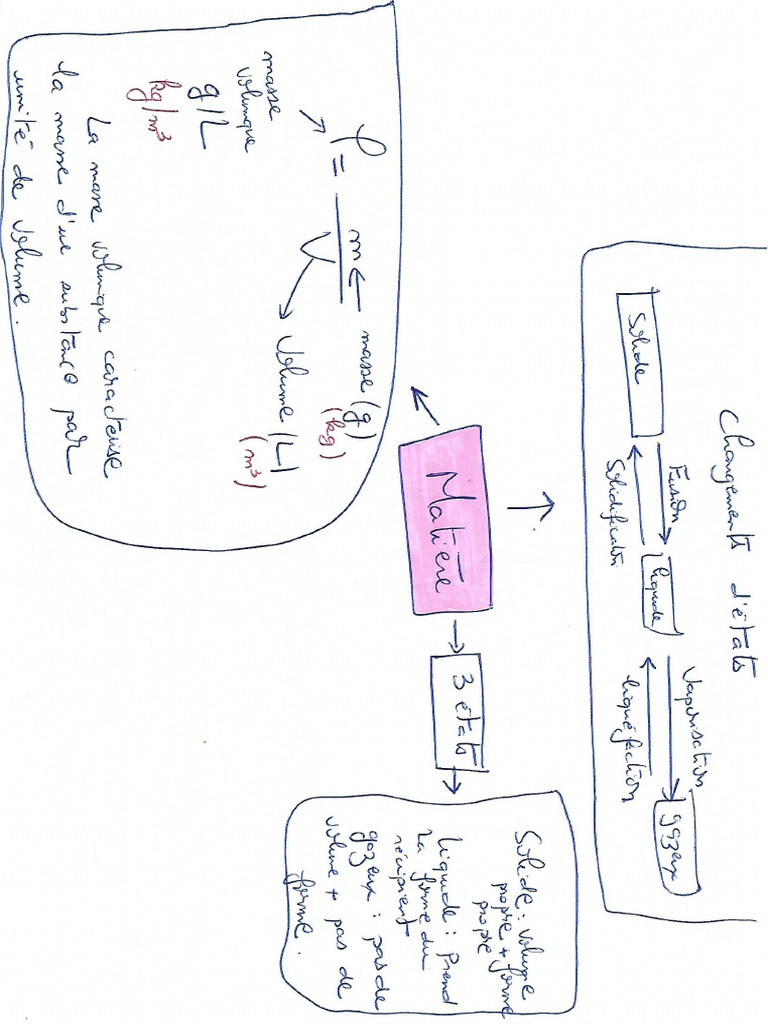 Changements d'états
Solide
Fusion
Solidification
liquide
Vaporisation
liquéfaction
gazeux
Matière
3 états
Solide : volume
propre + forme
propre
liquide : Prend
la forme du
récipient
gazeux : pas de
volume + pas de
forme.
ρ = m / V
masse (g)
(kg)
Volume (L)
(m³)
masse
volumique
g/L
kg/m³
La masse volumique caractérise
la masse d'une substance par
unité de volume.